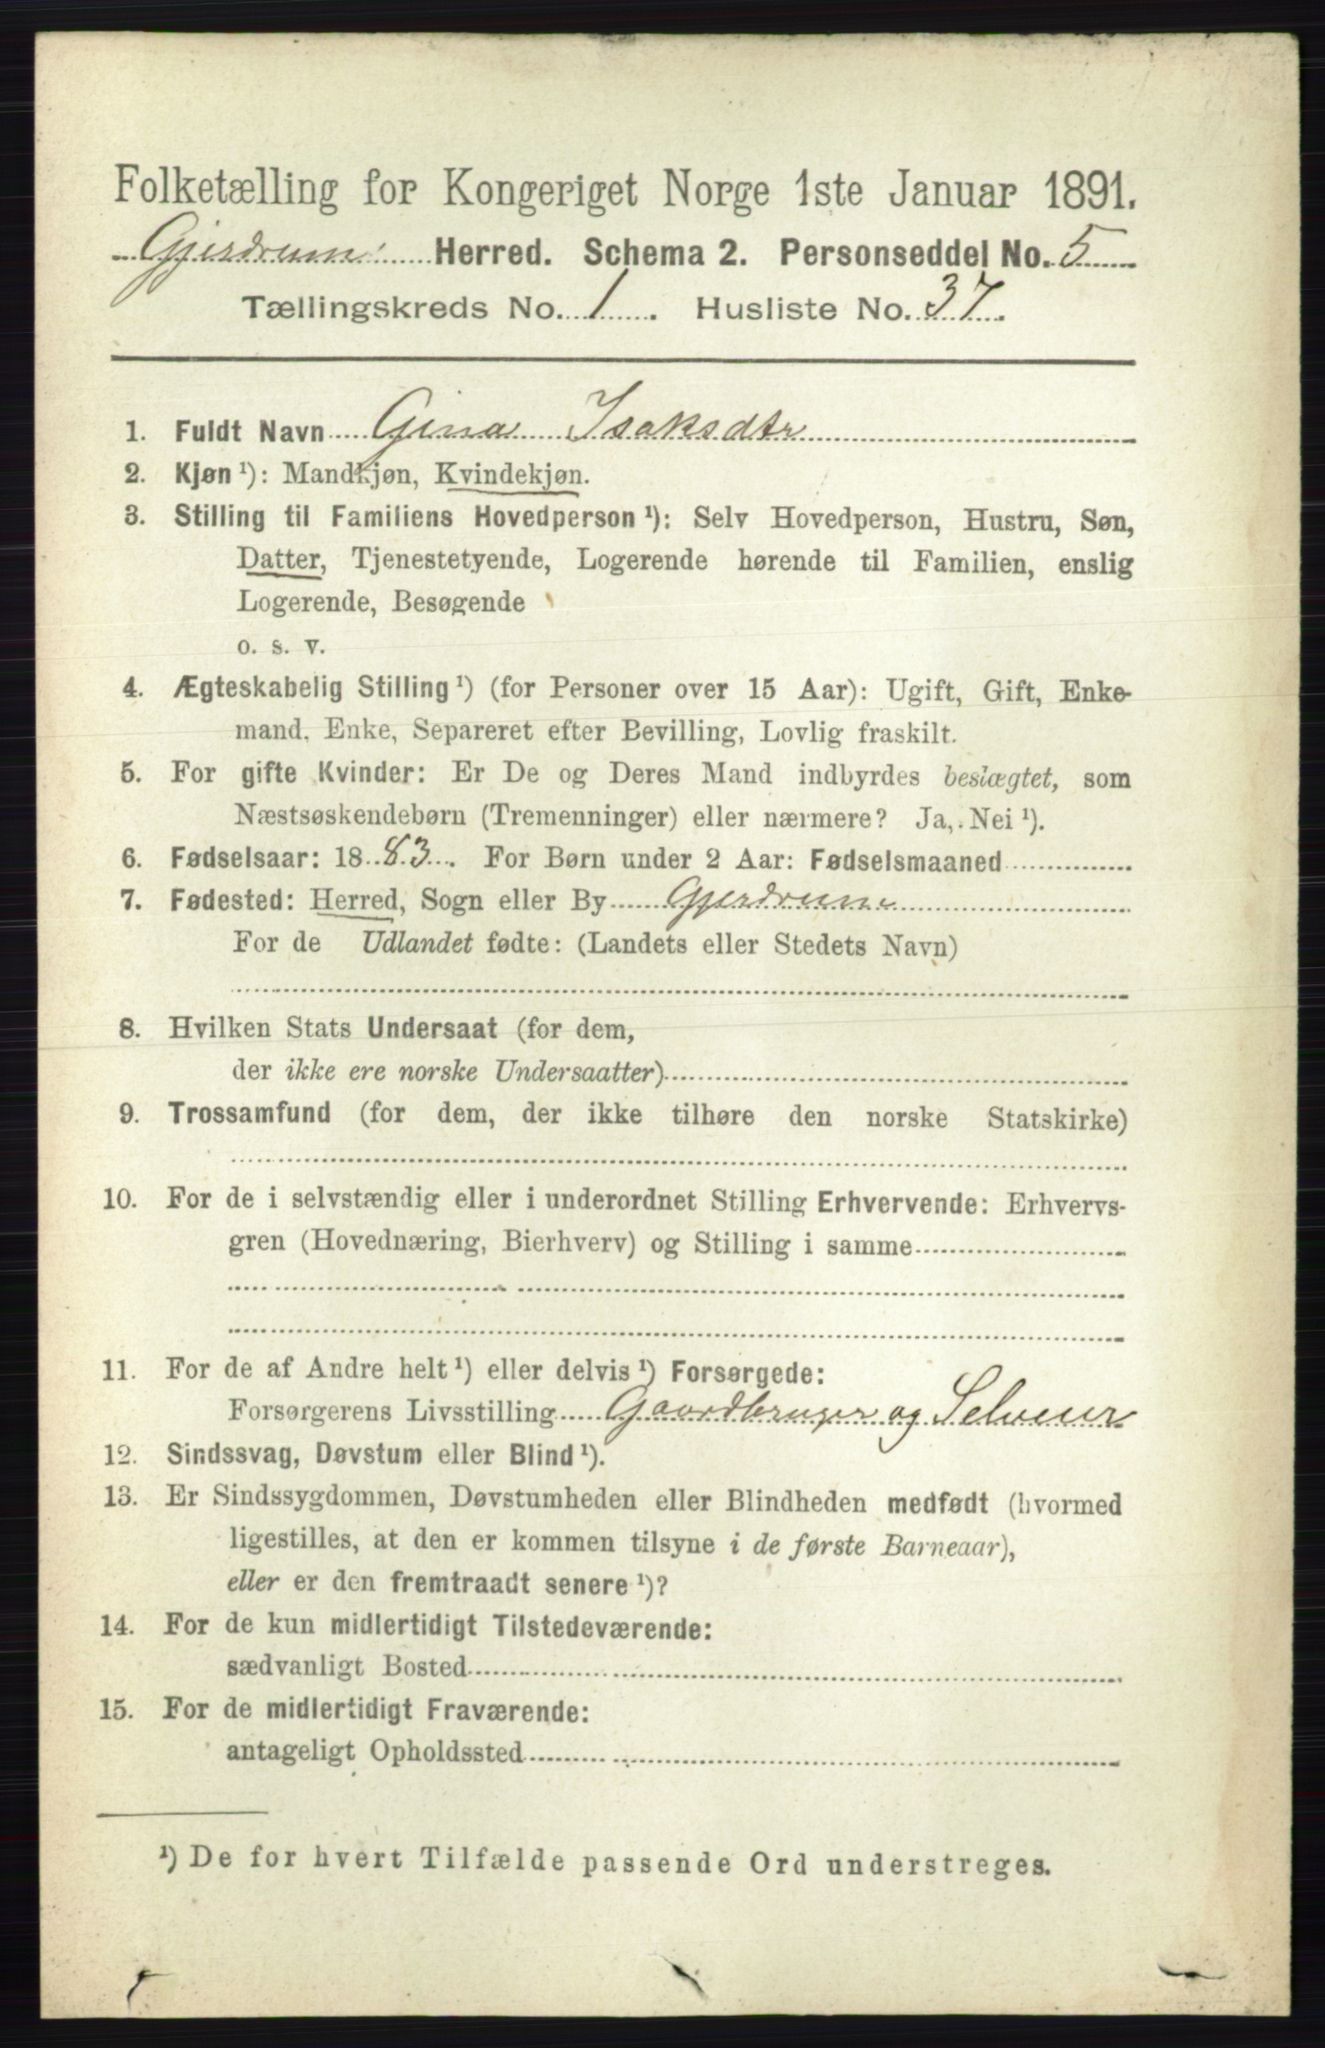 Folketælling for Kongeriget Norge 1ste Januar 1891.
Gjerdrum Herred. Schema 2. Personseddel No. 5
Tællingskreds No. 1. Husliste No. 37.
1. Fuldt Navn Gina Isaksdtr
2. Kjøn ¹): Mandkjøn, Kvindekjøn.
3. Stilling til Familiens Hovedperson ¹): Selv Hovedperson, Hustru, Søn,
Datter, Tjenestetyende, Logerende hørende til Familien, enslig
Logerende, Besøgende
o. s. v.
4. Ægteskabelig Stilling ¹) (for Personer over 15 Aar): Ugift, Gift, Enke-
mand, Enke, Separeret efter Bevilling, Lovlig fraskilt.
5. For gifte Kvinder: Er De og Deres Mand indbyrdes beslægtet, som
Næstsøskendebørn (Tremenninger) eller nærmere? Ja, Nei ¹).
6. Fødselsaar: 1883. For Børn under 2 Aar: Fødselsmaaned
7. Fødested: Herred, Sogn eller By Gjerdrum
For de Udlandet fødte: (Landets eller Stedets Navn)
8. Hvilken Stats Undersaat (for dem,
der ikke ere norske Undersaatter)
9. Trossamfund (for dem, der ikke tilhøre den norske Statskirke)
10. For de i selvstændig eller i underordnet Stilling Erhvervende: Erhvervs-
gren (Hovednæring, Bierhverv) og Stilling i samme
11. For de af Andre helt ¹) eller delvis ¹) Forsørgede:
Forsørgerens Livsstilling Gaardbruger og Selveier
12. Sindssvag, Døvstum eller Blind ¹).
13. Er Sindssygdommen, Døvstumheden eller Blindheden medfødt (hvormed
ligestilles, at den er kommen tilsyne i de første Barneaar),
eller er den fremtraadt senere ¹)?
14. For de kun midlertidigt Tilstedeværende:
sædvanligt Bosted
15. For de midlertidigt Fraværende:
antageligt Opholdssted
¹) De for hvert Tilfælde passende Ord understreges.